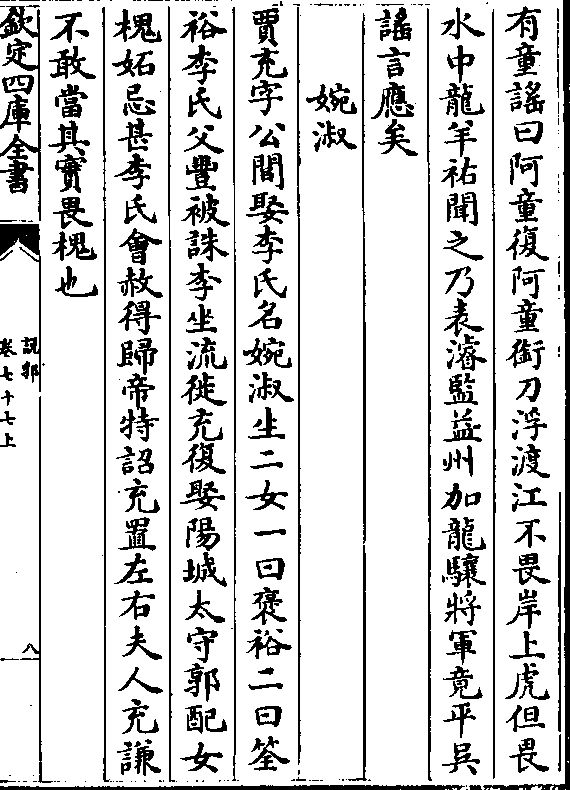 有童謡曰阿童復阿童銜刀浮渡江不畏岸上虎但畏
水中龍羊祜聞之乃表濬監益州加龍驤將軍竟平吳
謡言應矣
婉淑
賈充字公閭娶李氏名婉淑生二女一曰褒裕二曰筌
裕李氏父豐被誅李坐流徙充復娶陽城太守郭配女
槐妬忌甚李氏會赦得歸帝特詔充置左右夫人充謙
不敢當其實畏槐也
欽定四庫全書
說郛
卷七十七上
八